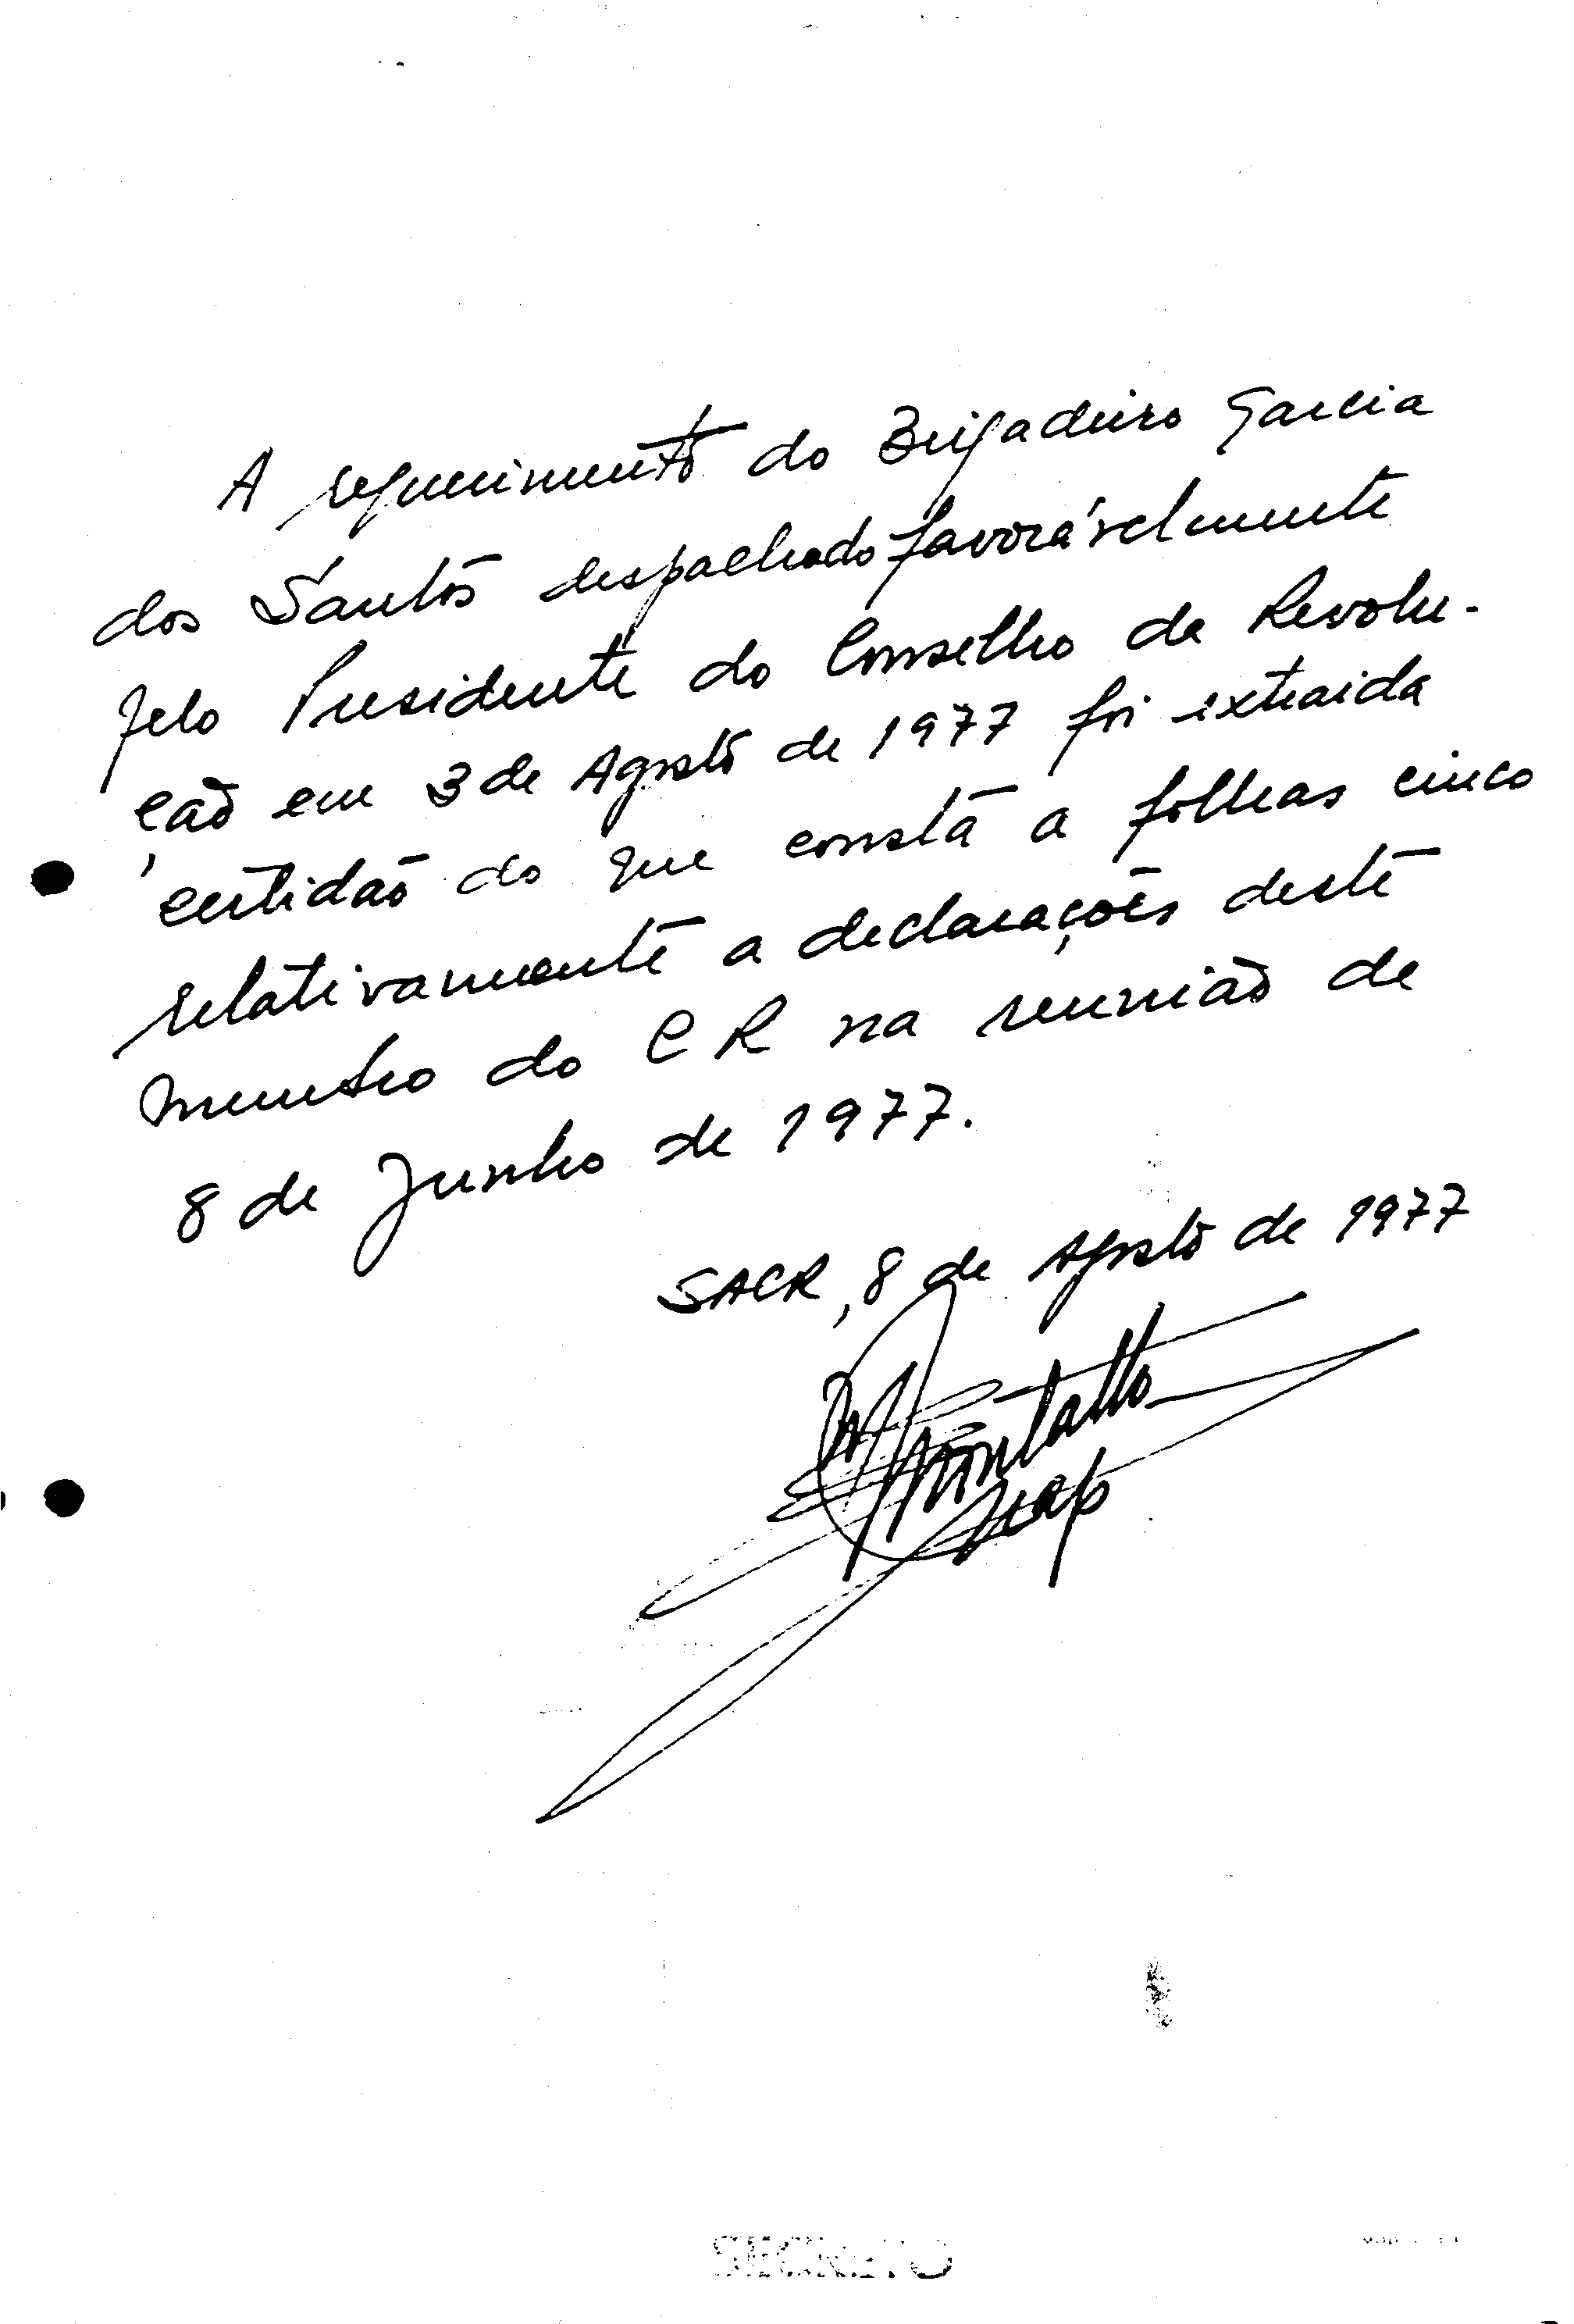 A requerimento do Brigadeiro Garcia
dos Santos despachado favorávelmente
pelo Presidente do Conselho da Revolu-
ção em 3 de Agosto de 1977 foi extraida
certidão do que consta a folhas cinco
relativamente a declarações deste
membro do CR na reunião de
8 de Junho de 1977.
SACR, 8 de Agosto de 1977
SECRETO